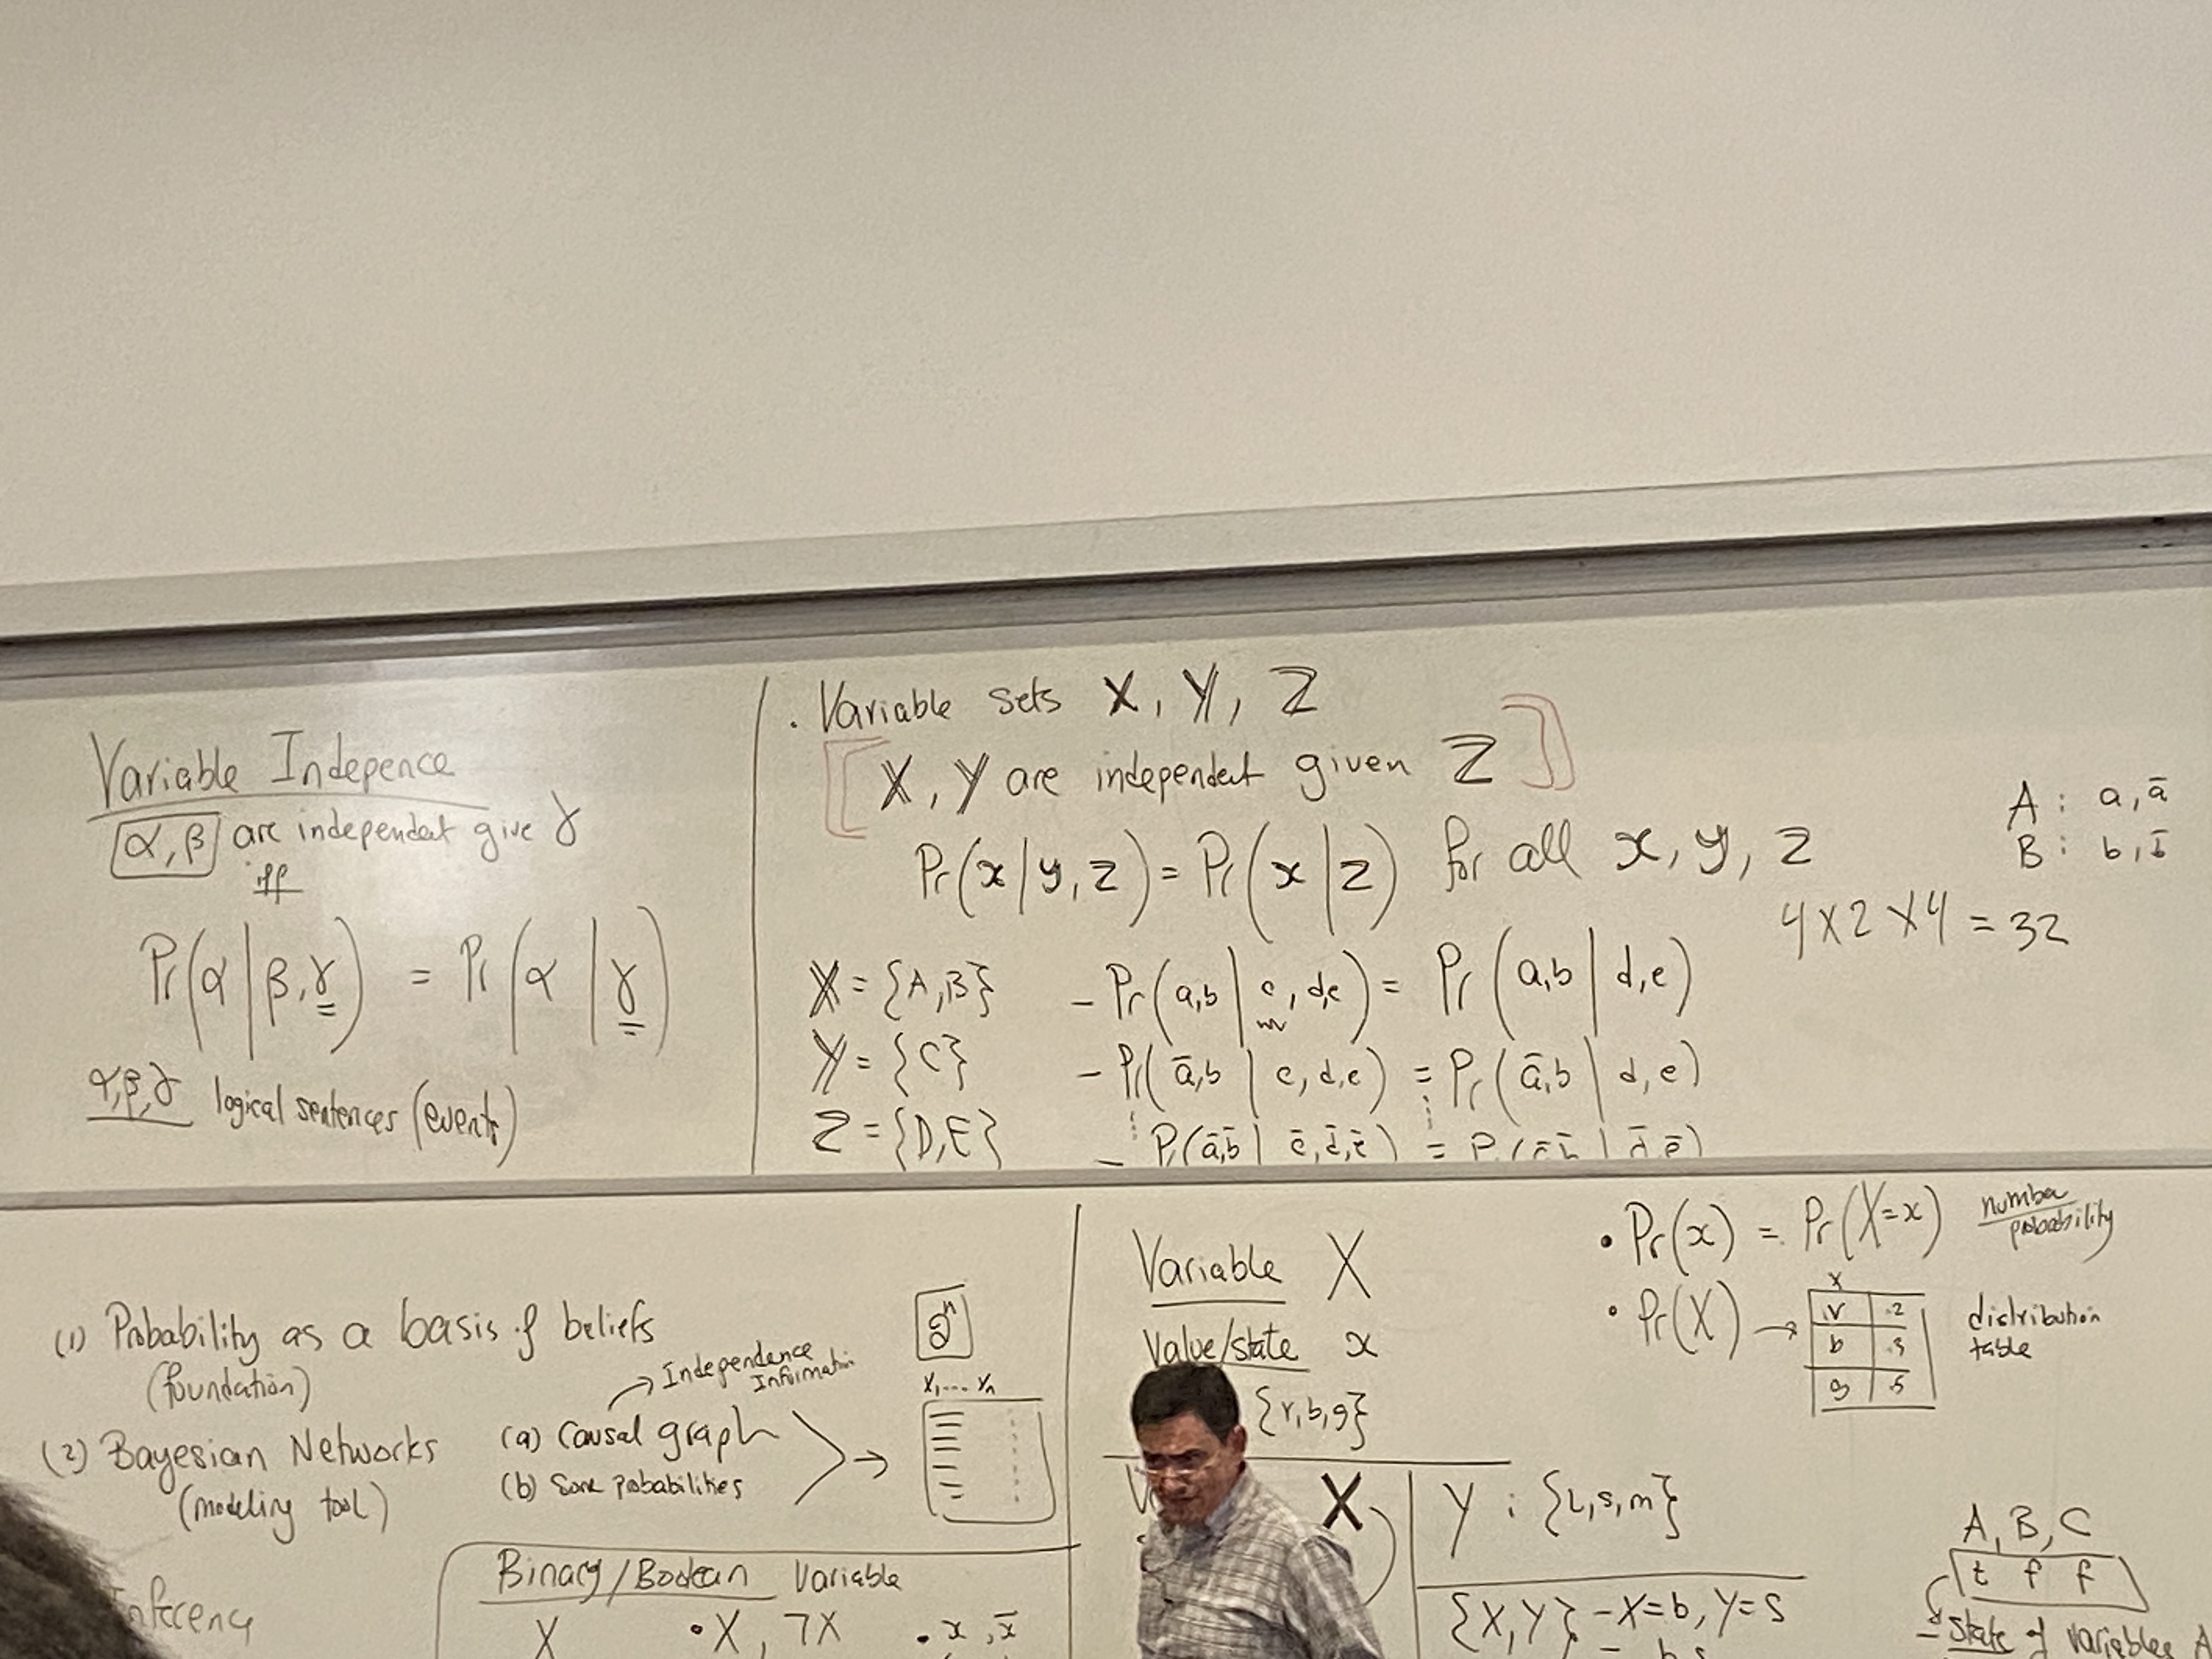 Variable Indepence
α, β are independent give γ
iff
Pr(α | β, γ) = Pr(α | γ)
α, β, γ logical sentences (events)
. Variable sets X, Y, Z
[X, Y are independent given Z]
Pr(x | y, z) = Pr(x | z) for all x, y, z
A : a, ā
B : b,
4 X 2 X 4 = 32
X = {A, B}
Y = {C}
Z = {D, E}
– Pr(a,b | c, d,e) = Pr(a,b | d,e)
– Pr(ā,b | c, d,e) = Pr(ā,b | d,e)
– Pr(ā,b̄ | c̄, d̄, ē) =
(1) Probability as a basis of beliefs
(foundation)
(2) Bayesian Networks
(modeling tool)
(a) Causal graph
→ Independence Information
(b) Some probabilities
2ⁿ
Inference
Binary/Boolean Variable
X • X, ¬X • x, x̄
Variable X
Value/state x
{r, b, g}
X
Y : {L, s, m}
{X, Y} – X=b, Y=s
• Pr(x) = Pr(X=x) number probability
• Pr(X) → X
r .2
b .3
g .5
distribution table
A, B, C
t f f
– state of variables A